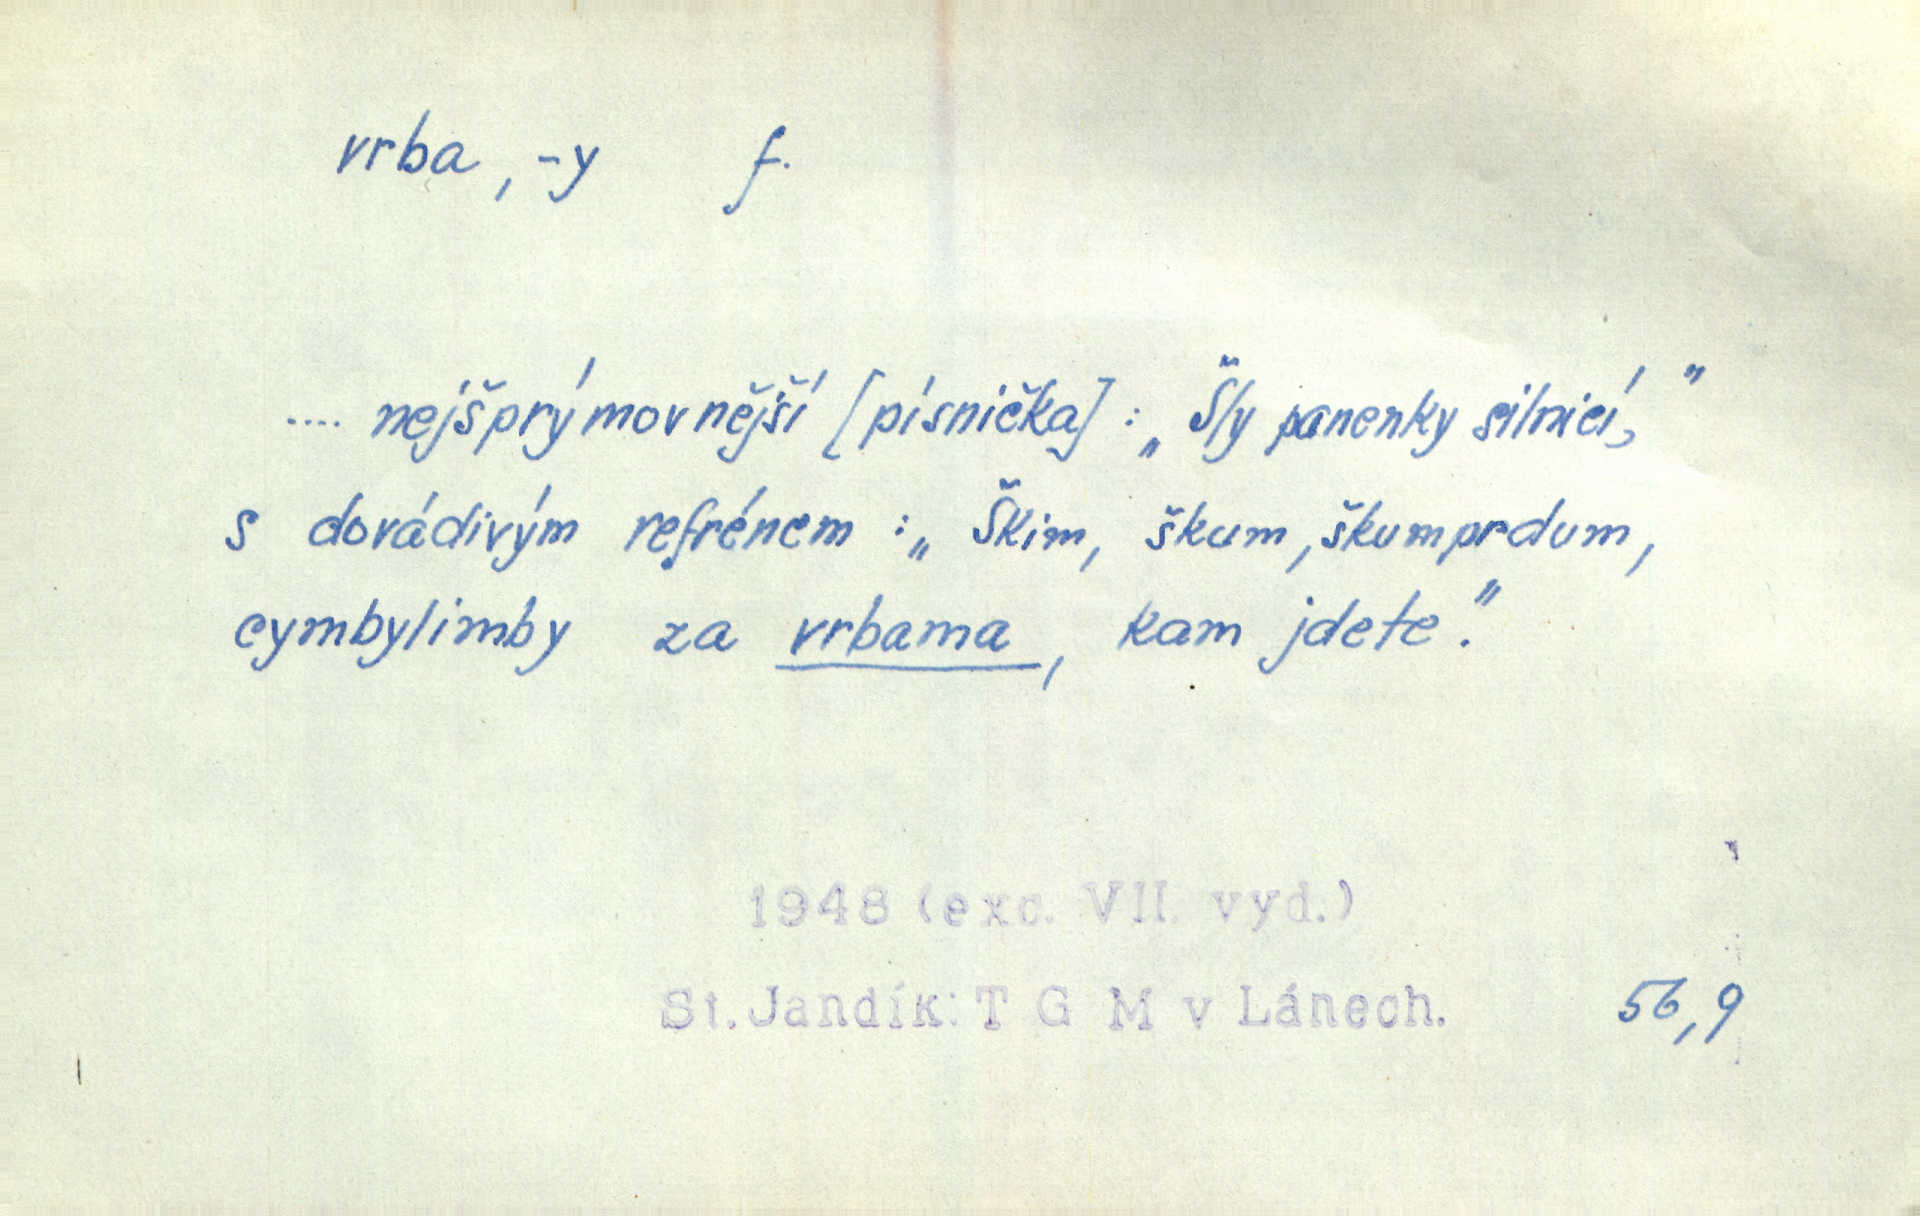 vrba, -y f.
.... nejšprýmovnější [písnička]: „Šly panenky silnicí,"
s dovádivým refrénem: „Škim, škum, škumprdum,
cymbylimby za vrbama, kam jdete."
1948 (exc. VII. vyd.)
St. Jandík: T G M v Lánech. 56,9